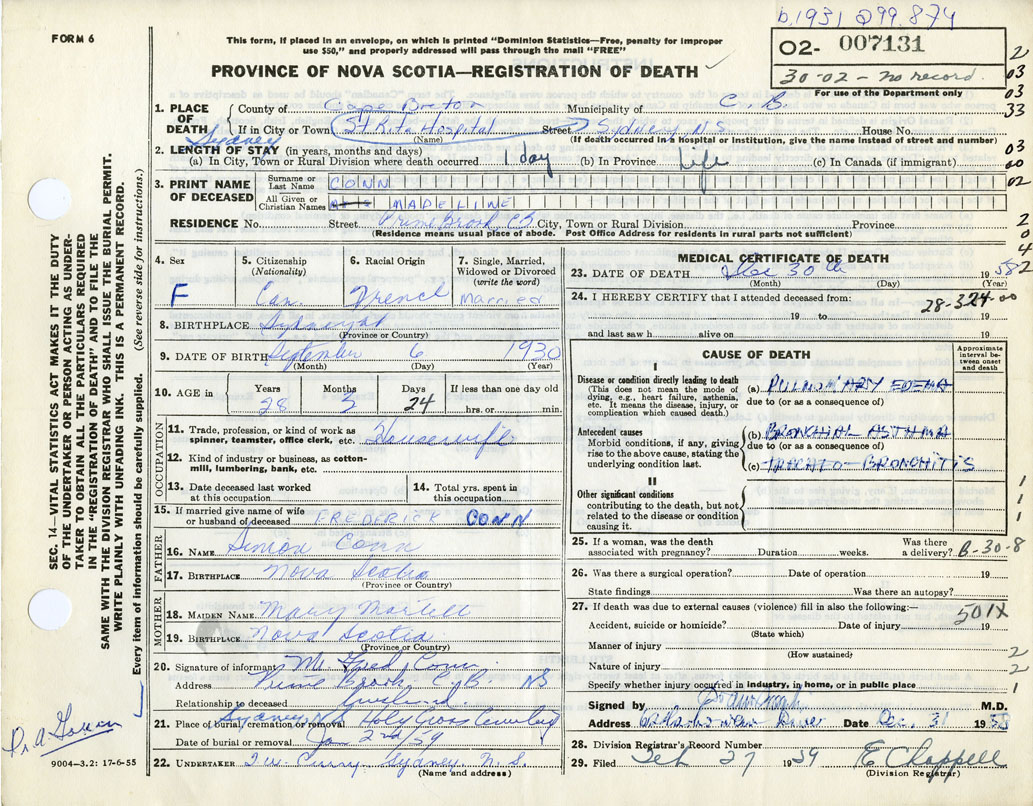 b.1931 299.874
FORM 6
This form, if placed in an envelope, on which is printed "Dominion Statistics—Free, penalty for improper
use $50," and properly addressed will pass through the mail "FREE"
02- 007131
30-02 — no record.
For use of the Department only
PROVINCE OF NOVA SCOTIA—REGISTRATION OF DEATH
1. PLACE OF DEATH County of Cape Breton Municipality of C. B.
If in City or Town St Rita Hospital Street Sydney N.S. House No.
(Name) (If death occurred in a hospital or institution, give the name instead of street and number)
Sydney
2. LENGTH OF STAY (in years, months and days)
(a) In City, Town or Rural Division where death occurred 1 day (b) In Province Life (c) In Canada (if immigrant)
3. PRINT NAME OF DECEASED Surname or Last Name CONN
All Given or Christian Names MADELINE
RESIDENCE No. Street Prime Brook CB City, Town or Rural Division Province
(Residence means usual place of abode. Post Office Address for residents in rural parts not sufficient)
4. Sex F
5. Citizenship (Nationality) Can.
6. Racial Origin French
7. Single, Married, Widowed or Divorced (write the word) Married
8. BIRTHPLACE Sydney
(Province or Country)
9. DATE OF BIRTH September 6 1930
(Month) (Day) (Year)
10. AGE in Years 28 Months 3 Days 24 If less than one day old hrs. or min.
OCCUPATION
11. Trade, profession, or kind of work as spinner, teamster, office clerk, etc. Housewife
12. Kind of industry or business, as cotton-mill, lumbering, bank, etc.
13. Date deceased last worked at this occupation
14. Total yrs. spent in this occupation
15. If married give name of wife or husband of deceased FREDERICK CONN
FATHER
16. NAME Simon Conn
17. BIRTHPLACE Nova Scotia
(Province or Country)
MOTHER
18. MAIDEN NAME Mary Martell
19. BIRTHPLACE Nova Scotia
(Province or Country)
20. Signature of informant Mr. Fred Conn
Address Prime Brook C.B. NS
Relationship to deceased Husband
21. Place of burial, cremation or removal Sydney Holy Cross Cemetery
Date of burial or removal Jan 2nd/59
22. UNDERTAKER T.W. Curry Sydney N.S.
(Name and address)
MEDICAL CERTIFICATE OF DEATH
23. DATE OF DEATH Dec 30th 1958
(Month) (Day) (Year)
24. I HEREBY CERTIFY that I attended deceased from:
28-324-00
19 to 19
and last saw h alive on 19
CAUSE OF DEATH
Approximate interval between onset and death
I
Disease or condition directly leading to death
(This does not mean the mode of dying, e.g., heart failure, asthenia, etc. It means the disease, injury, or complication which caused death.)
(a) PULMONARY EDEMA
due to (or as a consequence of)
Antecedent causes
Morbid conditions, if any, giving rise to the above cause, stating the underlying condition last.
(b) BRONCHIAL ASTHMA
due to (or as a consequence of)
(c) TRACHEO-BRONCHITIS
II
Other significant conditions
contributing to the death, but not related to the disease or condition causing it.
25. If a woman, was the death associated with pregnancy? Duration weeks. Was there a delivery? B-30-8
26. Was there a surgical operation? Date of operation 19
State findings Was there an autopsy?
27. If death was due to external causes (violence) fill in also the following:—
501X
Accident, suicide or homicide? Date of injury 19
(State which)
Manner of injury
(How sustained)
Nature of injury
Specify whether injury occurred in industry, in home, or in public place
Signed by M.D.
Address Date Dec. 31 1958
28. Division Registrar's Record Number
29. Filed Feb 27 1959 E Chappell
(Division Registrar)
SEC. 14—VITAL STATISTICS ACT MAKES IT THE DUTY
OF THE UNDERTAKER OR PERSON ACTING AS UNDER-
TAKER TO OBTAIN ALL THE PARTICULARS REQUIRED
IN THE "REGISTRATION OF DEATH" AND TO FILE THE
SAME WITH THE DIVISION REGISTRAR WHO SHALL ISSUE THE BURIAL PERMIT.
WRITE PLAINLY WITH UNFADING INK. THIS IS A PERMANENT RECORD.
Every item of information should be carefully supplied. (See reverse side for instructions.)
9004—3.2: 17-6-55
2
03
03
33
03
00
02
2
0
4
2
1
1
1
2
2
1